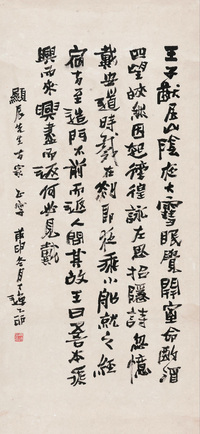 王子猷居山陰夜大雪眠覺開室命酌酒
四望皎然因起彷徨詠左思招隱詩忽憶
戴安道時戴在剡即乘小船就之經
宿方至造門不前而返人問其故王曰吾本乘
興而來興盡而返何必見戴
先生方家正 甲申冬月